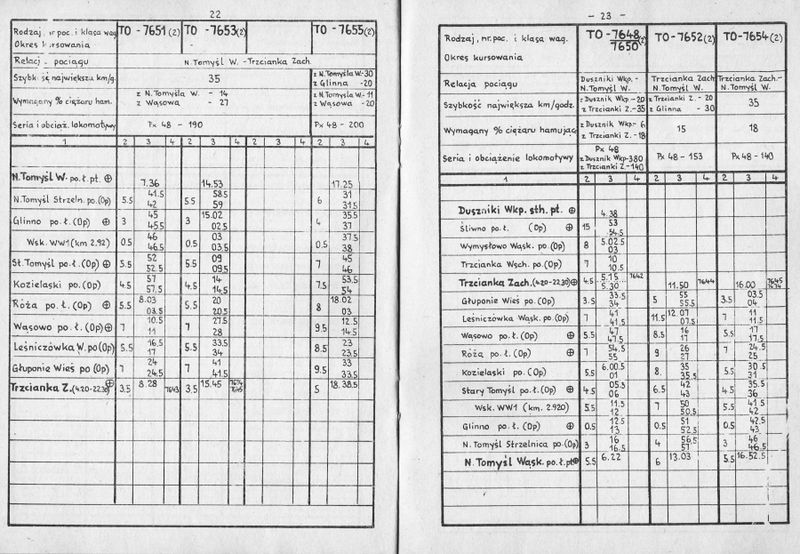 22
Rodzaj, nr. poc. i klasa wag. TO-7651(2) TO-7653(2) TO-7655(2)
Okres kursowania
Relacja pociągu N.Tomyśl W. - Trzcianka Zach.
Szybkość największa km/g. 35 z N.Tomyśla W.-30
z Glinna -20
Wymagany % ciężaru ham. z N.Tomyśla W. - 14 z N.Tomyśla W.-11
z Wąsowa - 27 z Wąsowa -20
Seria i obciąż. lokomotywy Px 48 - 190 Px 48 - 200
1 2 3 4 2 3 4 2 3 4
N.Tomyśl W. po.ł.pt. ⊕ 7.36 14.53 17.25
N.Tomyśl Strzeln. po.(Op) 5.5 41.5 5.5 58.5 6 31
42 59 31.5
Glinno po.ł.(Op) ⊕ 3 45 3 15.02 4 35.5
45.5 02.5 37
Wsk. WW1 (km 2.92) 0.5 46 0.5 03 0.5 37.5
46.5 03.5 38
St.Tomyśl po.ł.(Op) ⊕ 5.5 52 5.5 09 7 45
52.5 09.5 46
Kozielaski po.(Op) 4.5 57 4.5 14 7.5 53.5
57.5 14.5 54
Róża po.ł.(Op) ⊕ 5.5 8.03 5.5 20 8 18.02
03.5 20.5 03
Wąsowo po.ł.(Op) ⊕ 7 10.5 7 27.5 9.5 12.5
11 28 14.5
Leśniczówka W. po(Op) 5.5 16.5 5.5 33.5 8.5 23
17 34 23.5
Głuponie Wieś po(Op) 7 24 7 41 9.5 33
24.5 41.5 33.5
Trzcianka Z.(4.20-22.30) ⊕ 3.5 8.28 7643 3.5 15.45 5 18.38.5
- 23 -
Rodzaj, nr. poc. i klasa wag. TO-7648/7650(2) TO-7652(2) TO-7654(2)
Okres kursowania
Relacja pociągu Duszniki Wkp.- N.Tomyśl W. Trzcianka Zach N.Tomyśl W. Trzcianka Zach.- N.Tomyśl W.
Szybkość największa km/godz. z Duszník Wkp.-20 z Trzcianki Z. - 20 35
z Trzcianki Z.-35 z Glinna - 30
Wymagany % ciężaru hamując. z Duszník Wkp.- 6 15 18
z Trzcianki Z.-18
Seria i obciążenie lokomotywy Px 48 Px 48 - 153 Px 48 - 140
z Dusznik Wkp-380
z Trzcianki Z.-140
1 2 3 4 2 3 4 2 3 4
Duszniki Wkp. sth. pt. ⊕ 4.38
Śliwno po.ł. (Op) ⊕ 15 53
54.5
Wymysłowo Wąsk. po.(Op) 8 5.02.5
03
Trzcianka Wsch. po.(Op) 7 10
10.5
Trzcianka Zach.(4.20-22.30) ⊕ 4.5 5.15 7642 11.50 7644 16.00
5.30
Głuponie Wieś po.(Op) 3.5 33.5 5 55 3.5 03.5
34 55.5 04
Leśniczówka Wąsk. po.(Op) 7 41 11.5 12.07 7 11
41.5 07.5 11.5
Wąsowo po.ł.(Op) ⊕ 5.5 47 8.5 16 5.5 17
47.5 17 17.5
Róża po.ł.(Op) ⊕ 7 54.5 9 26 7 24.5
55 27 25
Kozielaski po.(Op) 5.5 6.00.5 8 35 5.5 30.5
01 35.5 31
Stary Tomyśl po.ł.(Op) ⊕ 4.5 05.5 6.5 42 4.5 35.5
06 43 36
Wsk. WW1 (km. 2.920) 5.5 11.5 7 50 5.5 41.5
12 50.5 42
Glinno po.ł.(Op) ⊕ 0.5 12.5 0.5 51 0.5 42.5
13 52.5 43
N.Tomyśl Strzelnica po.(Op) 3 16 4 56.5 3 46
16.5 57 46.5
N.Tomyśl Wąsk. po.ł.pt ⊕ 5.5 6.22 6 13.03 5.5 16.52.5